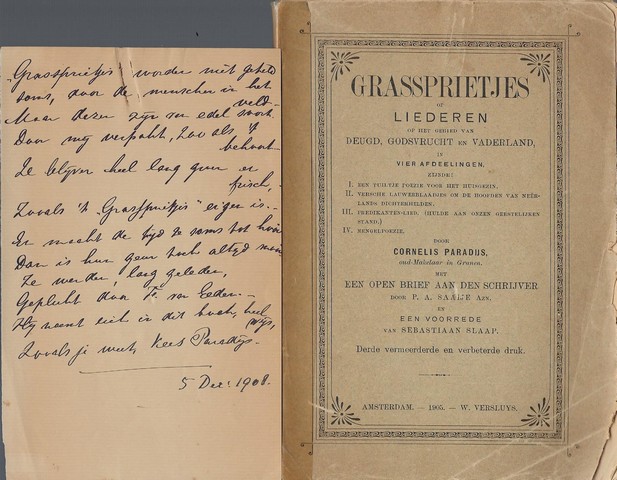 „Grassprietjes" worden niet geheel
soms, door de menschen in het
veld. -
Maar dezen zijn van edel soort.
Door mij verpakt, zoo als 't
behoort.
Ze blijven heel lang geur en
frisch, -
Zooals 't „Grassprietjis" eigen is. -
En mocht de tijd ze soms tot hooi
Dan is hun geur toch altijd mooi
Ze werden, lang geleden,
Geplukt door F. van Eeden. -
Hij noemt zich in dit boek, heel
wijs,
Zooals je weet, Kees Paradijs. -
5 Dec. 1908.
GRASSPRIETJES
OF
LIEDEREN
OP HET GEBIED VAN
DEUGD, GODSVRUCHT EN VADERLAND,
IN
VIER AFDEELINGEN,
ZIJNDE:
I. EEN PUIKJE POËZIE VOOR HET HUISGEZIN.
II. VERSCHE LAUWERBLAADJES OM DE HOOFDEN VAN NEÊR-
LANDS DICHTERHELDEN.
III. PREDIKANTEN-LIED. (HULDE AAN ONZEN GEESTELIJKEN
STAND.)
IV. MENGELPOËZIE.
DOOR
CORNELIS PARADIJS.
oud-Makelaar in Granen.
MET
EEN OPEN BRIEF AAN DEN SCHRIJVER
DOOR P. A. SAAIJE AZN.
EN
EEN VOORREDE
VAN SEBASTIAAN SLAAP.
Derde vermeerderde en verbeterde druk.
AMSTERDAM. — 1905. — W. VERSLUYS.